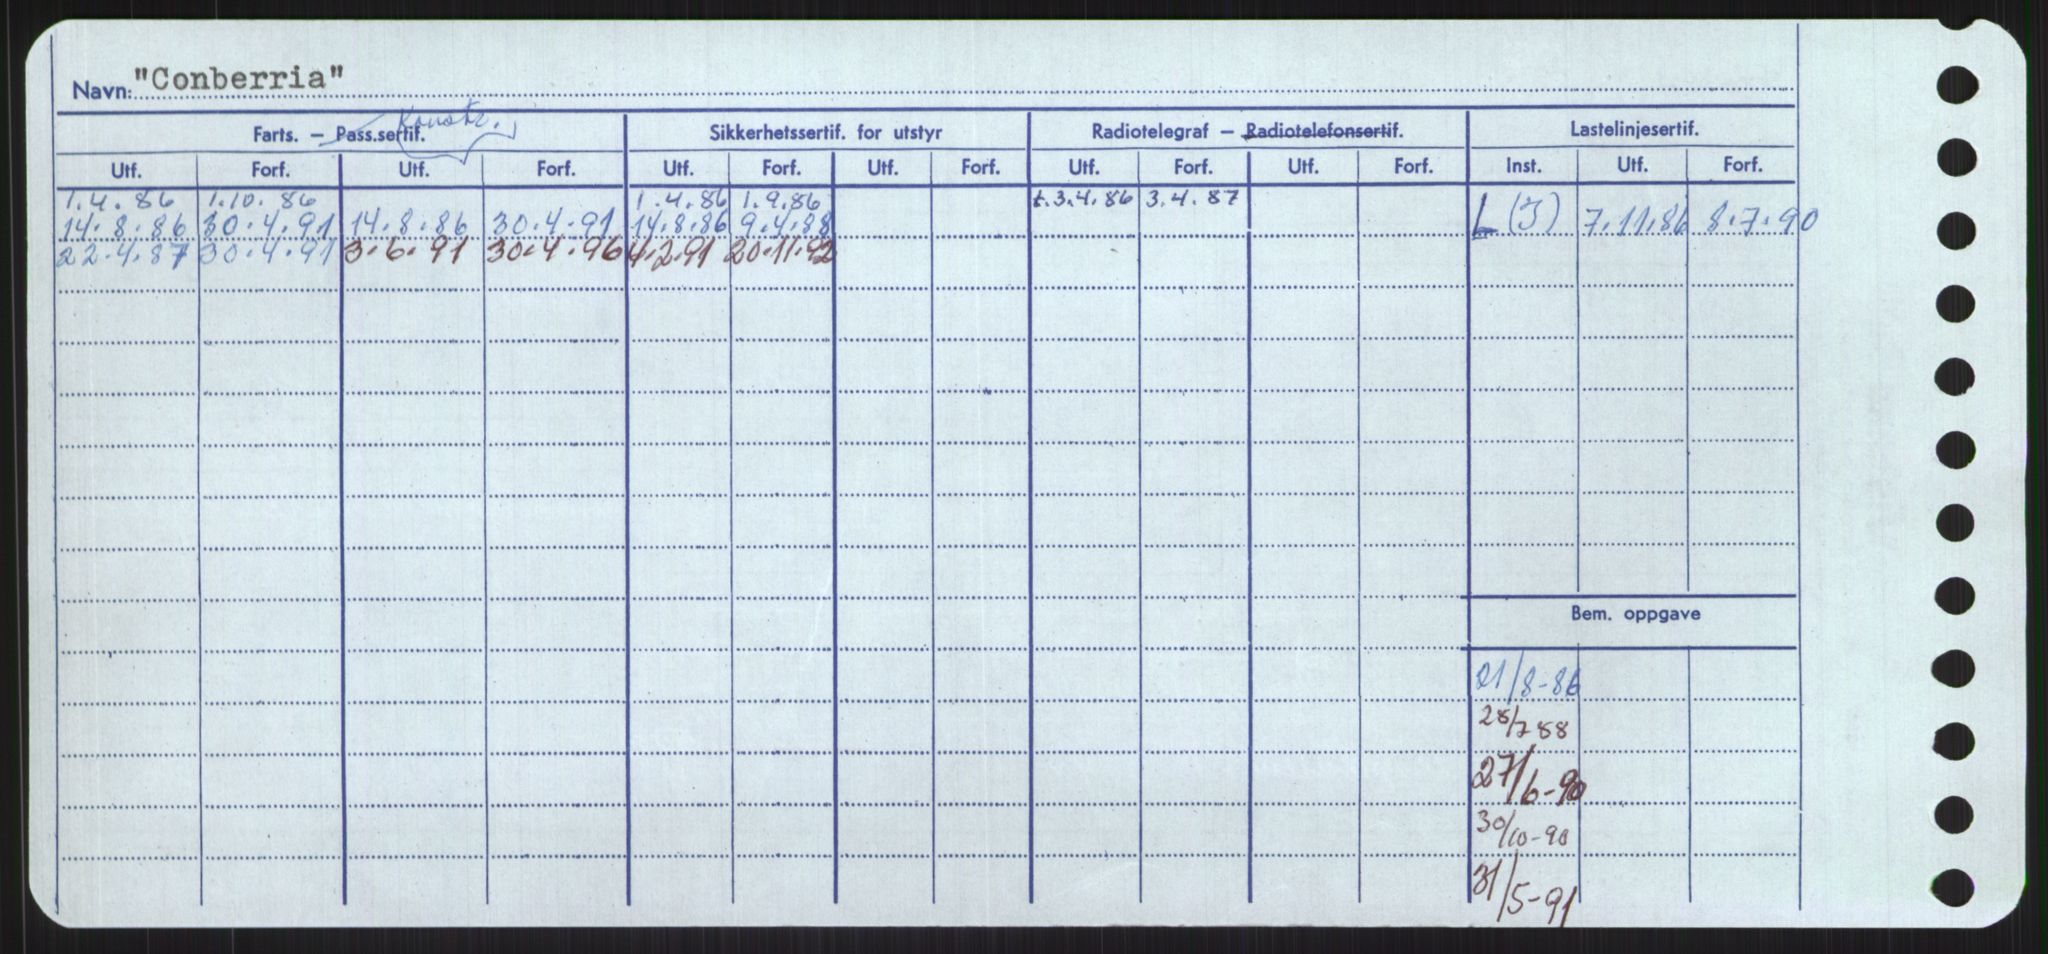 Navn: "Conberria"
Konstr.
Farts. — Pass.sertif. Sikkerhetssertif. for utstyr Radiotelegraf — Radiotelefonsertif. Lastelinjesertif.
Utf. Forf. Utf. Forf. Utf. Forf. Utf. Forf. Utf. Forf. Utf. Forf. Inst. Utf. Forf.
1.4.86 1.10.86 1.4.86 1.9.86 t.3.4.86 3.4.87
14.8.86 30.4.91 14.8.86 30.4.91 14.8.86 9.4.88 L (I) 7.11.86 8.7.90
22.4.87 30.4.91 3.6.91 30.4.96 4.2.91 20.11.92
Bem. oppgave
21/8-86
28/7 88
27/6-90
30/10-90
31/5-91